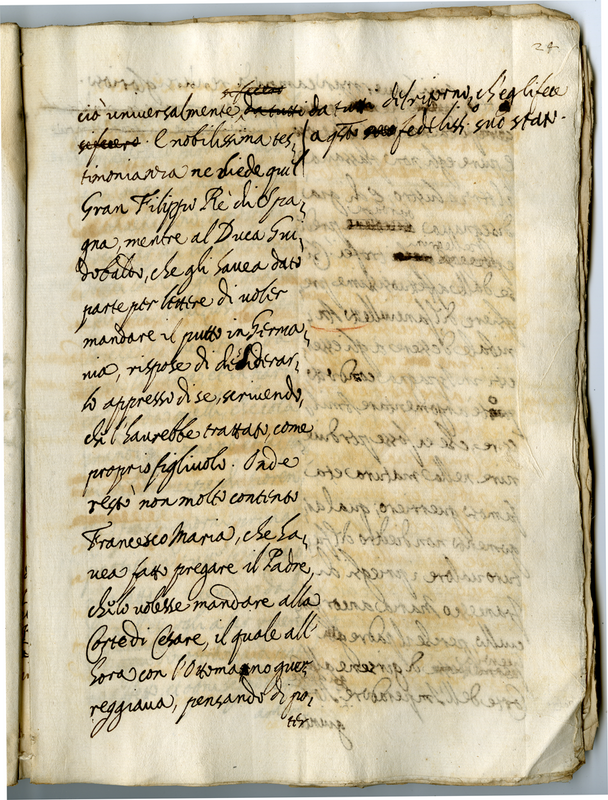 24
ciò universalmente da tutti da tutti
E nobilissima tes,
timonianza ne diede qui'l
Gran Filippo Rè di Spa,
gna, mentre al Duca Gui,
dobaldo, che gli havea dato
parte per lettere di voler
mandare il putto in Germa,
nia, rispose di desiderar,
lo appresso di se, scrivendo,
ch'l'haurebbe trattato, come
proprio figlivolo. Onde
restò non molto contento
Francesco Maria, che ha,
vea fatto pregare il Padre,
ch'lo volesse mandare alla
Corte di Cesare, il quale all'
hora con l'Ottomanno guer,
reggiava, pensando di po,
ter
del ritorno, ch'egli fece
a qsto fedeliss.º suo stato.